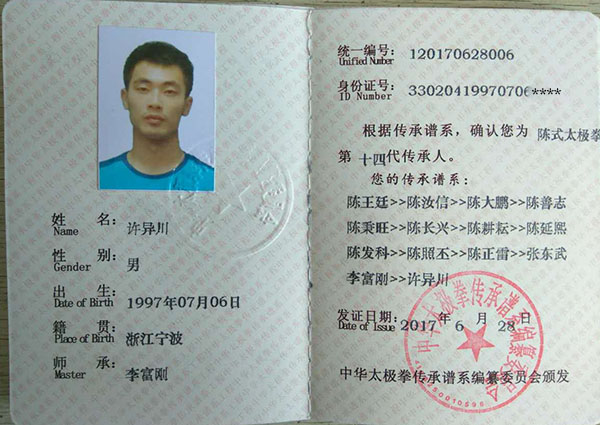 姓 名:
Name
许异川
性 别:
Gender
男
出 生:
Date of Birth
1997年07月06日
籍 贯:
Place of Birth
浙江宁波
师 承:
Master
李富刚
统一编号:
Unified Number
120170628006
身份证号:
ID Number
33020419970706****
根据传承谱系,确认您为 陈式太极拳
第 十四代传承人。
您的传承谱系:
陈王廷>>陈汝信>>陈大鹏>>陈善志
陈秉旺>>陈长兴>>陈耕耘>>陈延熙
陈发科>>陈照丕>>陈正雷>>张东武
李富刚>>许异川
发证日期:
Date of Issue
2017 年 6 月 28 日
中华太极拳传承谱系编纂委员会颁发
中华太极拳传承谱系编纂委员会